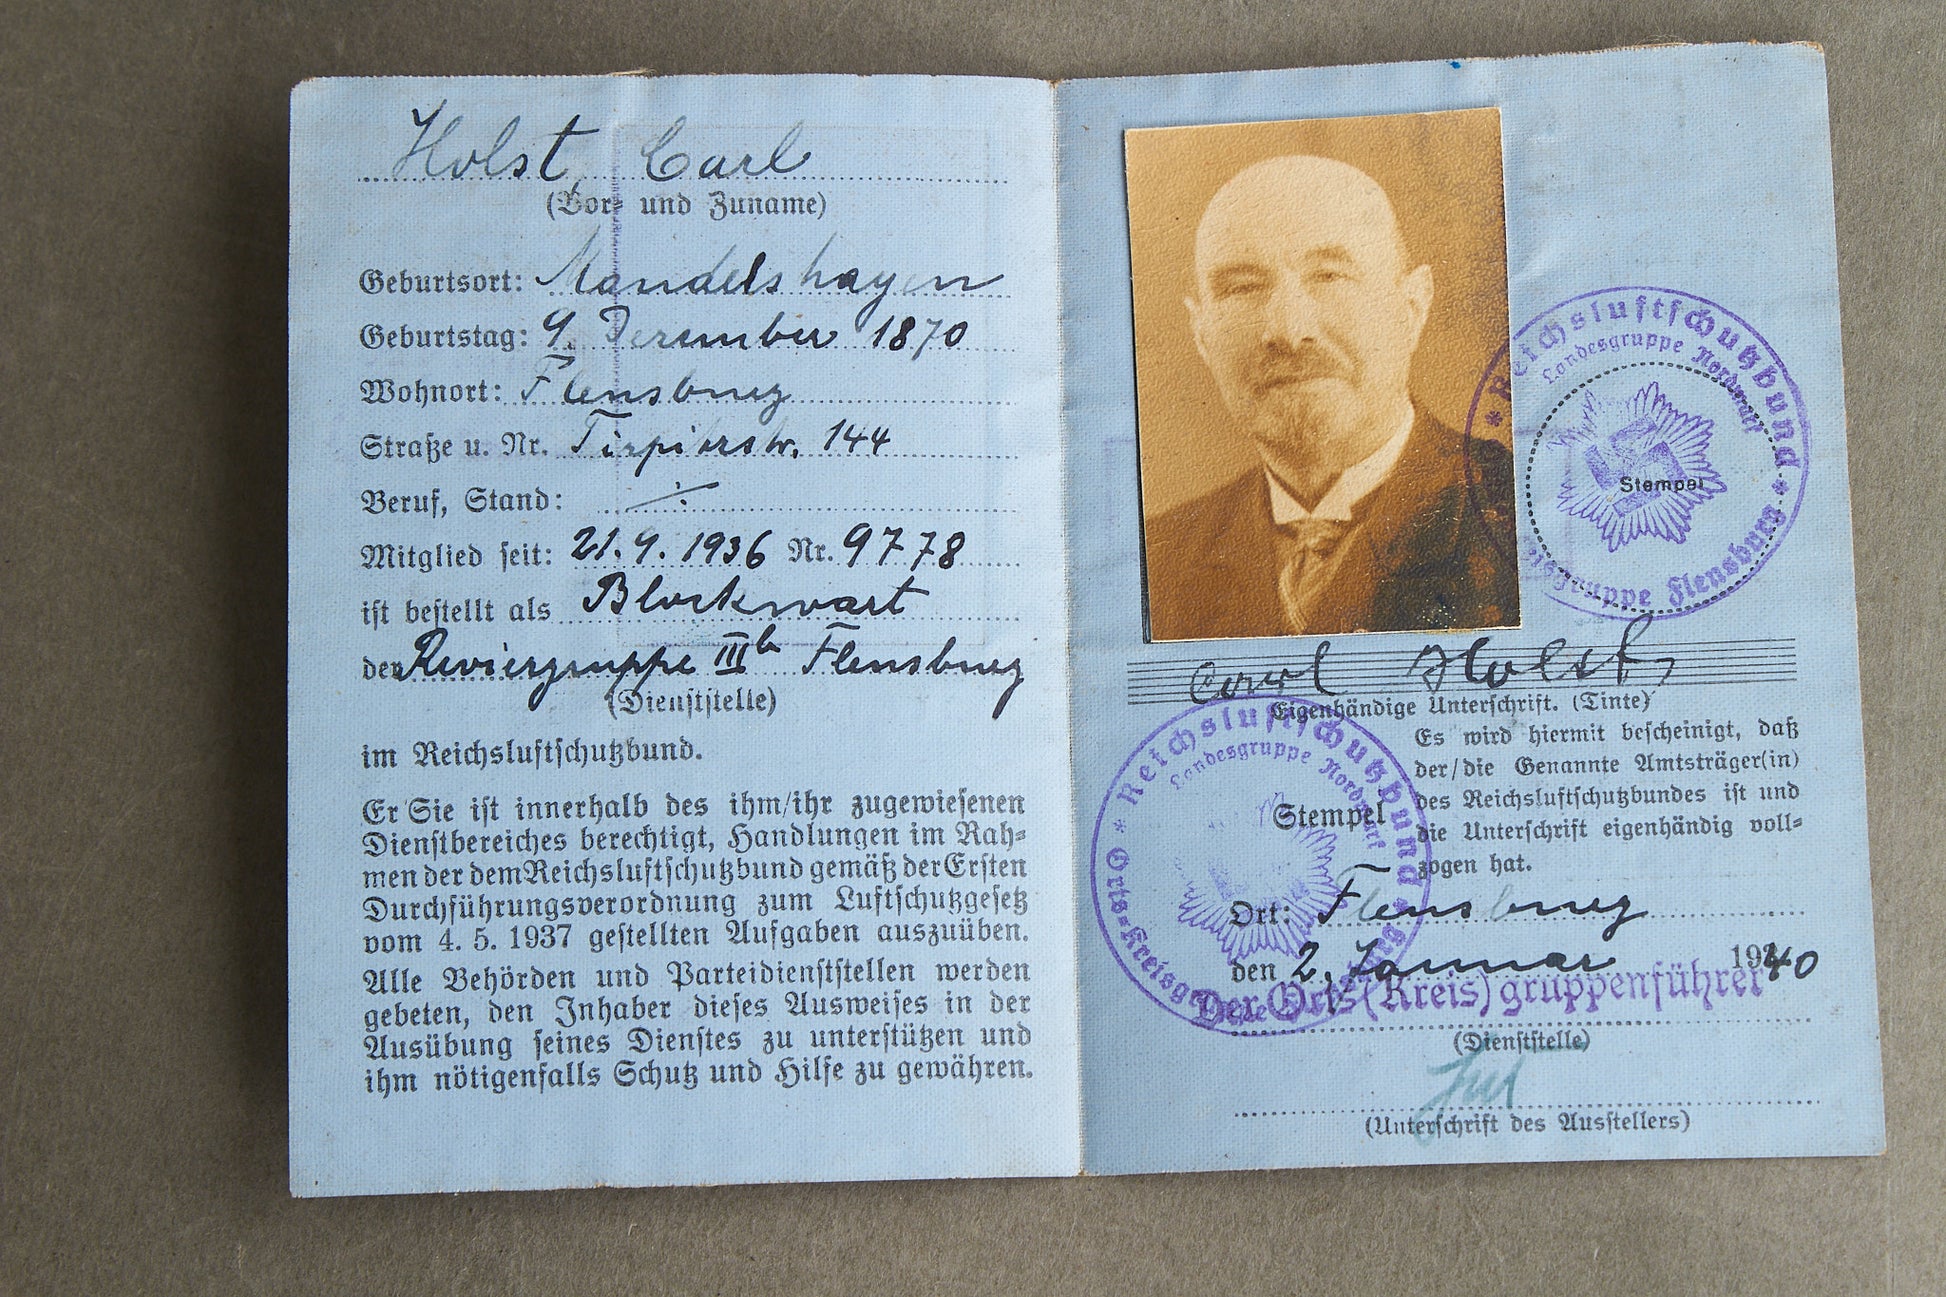 Holst, Carl
(Vor- und Zuname)
Geburtsort: Mandelshagen
Geburtstag: 9. Dezember 1870
Wohnort: Flensburg
Straße u. Nr. Tirpitzstr. 144
Beruf, Stand: ÷
Mitglied seit: 21. 9. 1936 Nr. 9778
ist bestellt als Blockwart
der Reviergruppe IIIb Flensburg
(Dienststelle)
im Reichsluftschutzbund.
Er/Sie ist innerhalb des ihm/ihr zugewiesenen
Dienstbereiches berechtigt, Handlungen im Rah-
men der dem Reichsluftschutzbund gemäß der Ersten
Durchführungsverordnung zum Luftschutzgesetz
vom 4. 5. 1937 gestellten Aufgaben auszuüben.
Alle Behörden und Parteidienststellen werden
gebeten, den Inhaber dieses Ausweises in der
Ausübung seines Dienstes zu unterstützen und
ihm nötigenfalls Schutz und Hilfe zu gewähren.
* Reichsluftschutzbund *
Landesgruppe Nordmark
Stempel
Flensburg
Carl Holst,
Eigenhändige Unterschrift. (Tinte)
Es wird hiermit bescheinigt, daß
der/die Genannte Amtsträger(in)
des Reichsluftschutzbundes ist und
die Unterschrift eigenhändig voll-
zogen hat.
* Reichsluftschutzbund *
Landesgruppe Nordmark
Stempel
Ort: Flensburg
den 2. Januar 1940
Der Orts(Kreis)gruppenführer
(Dienststelle)
(Unterschrift des Ausstellers)